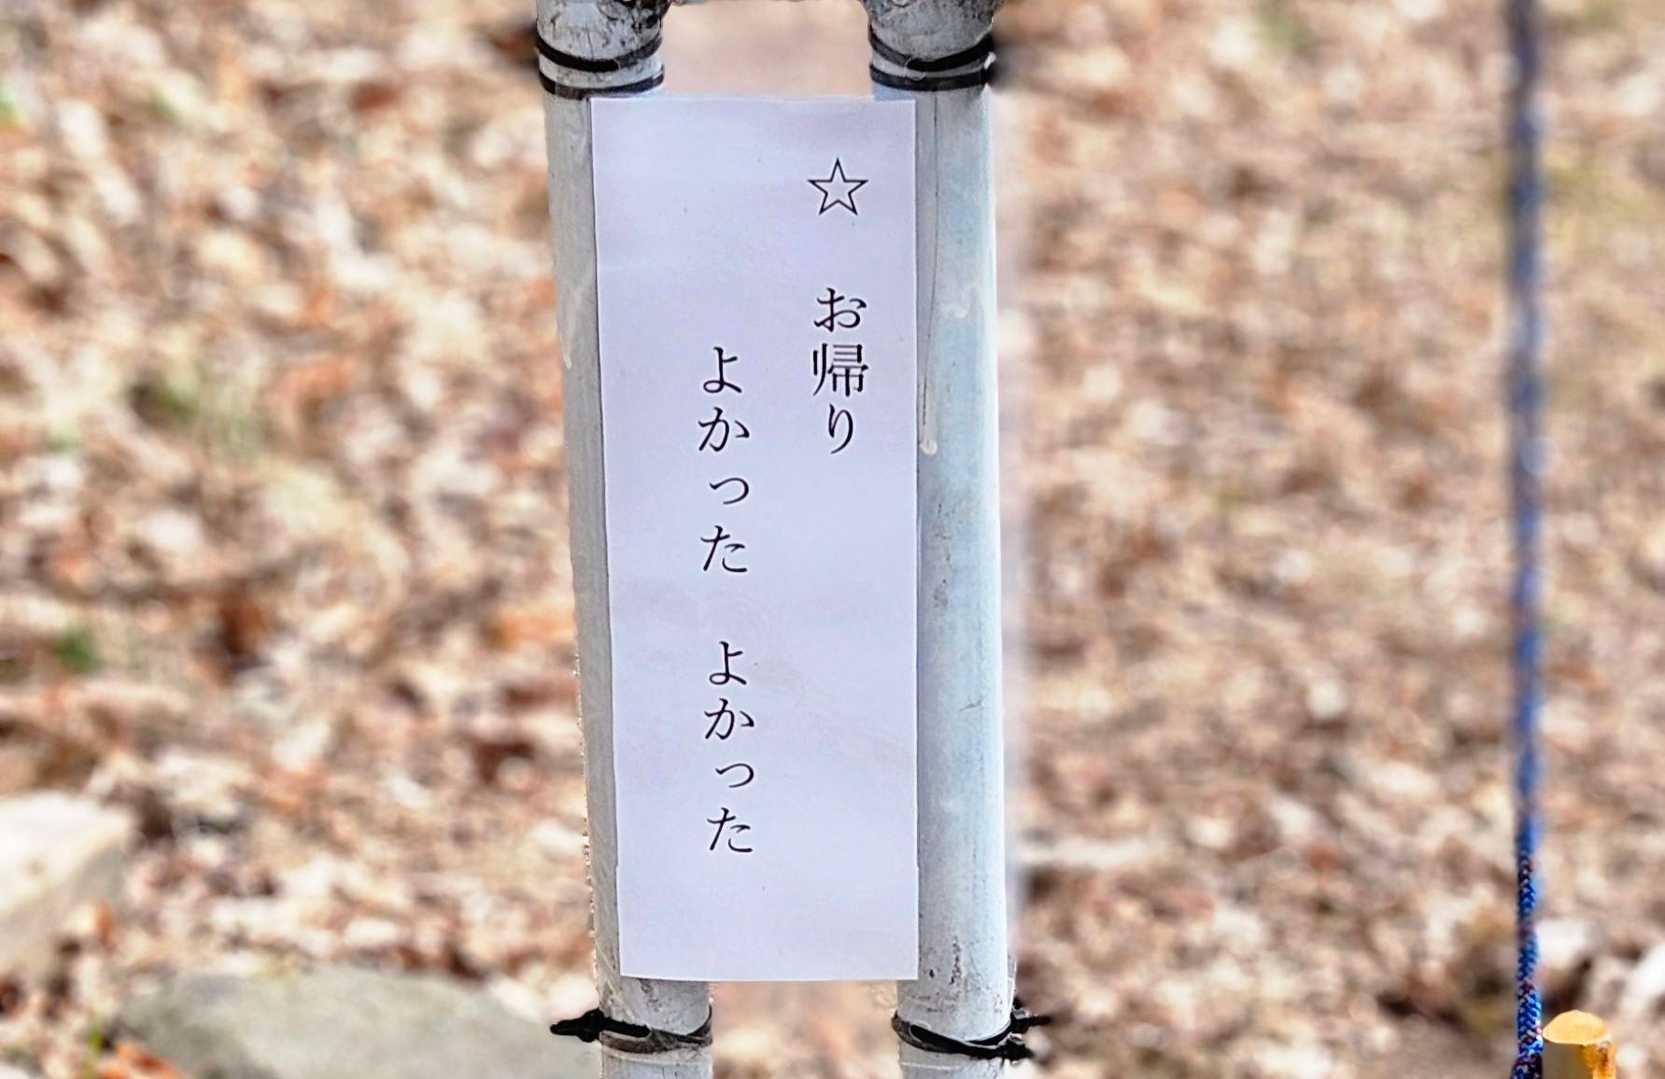 ☆ お帰り
よかった よかった